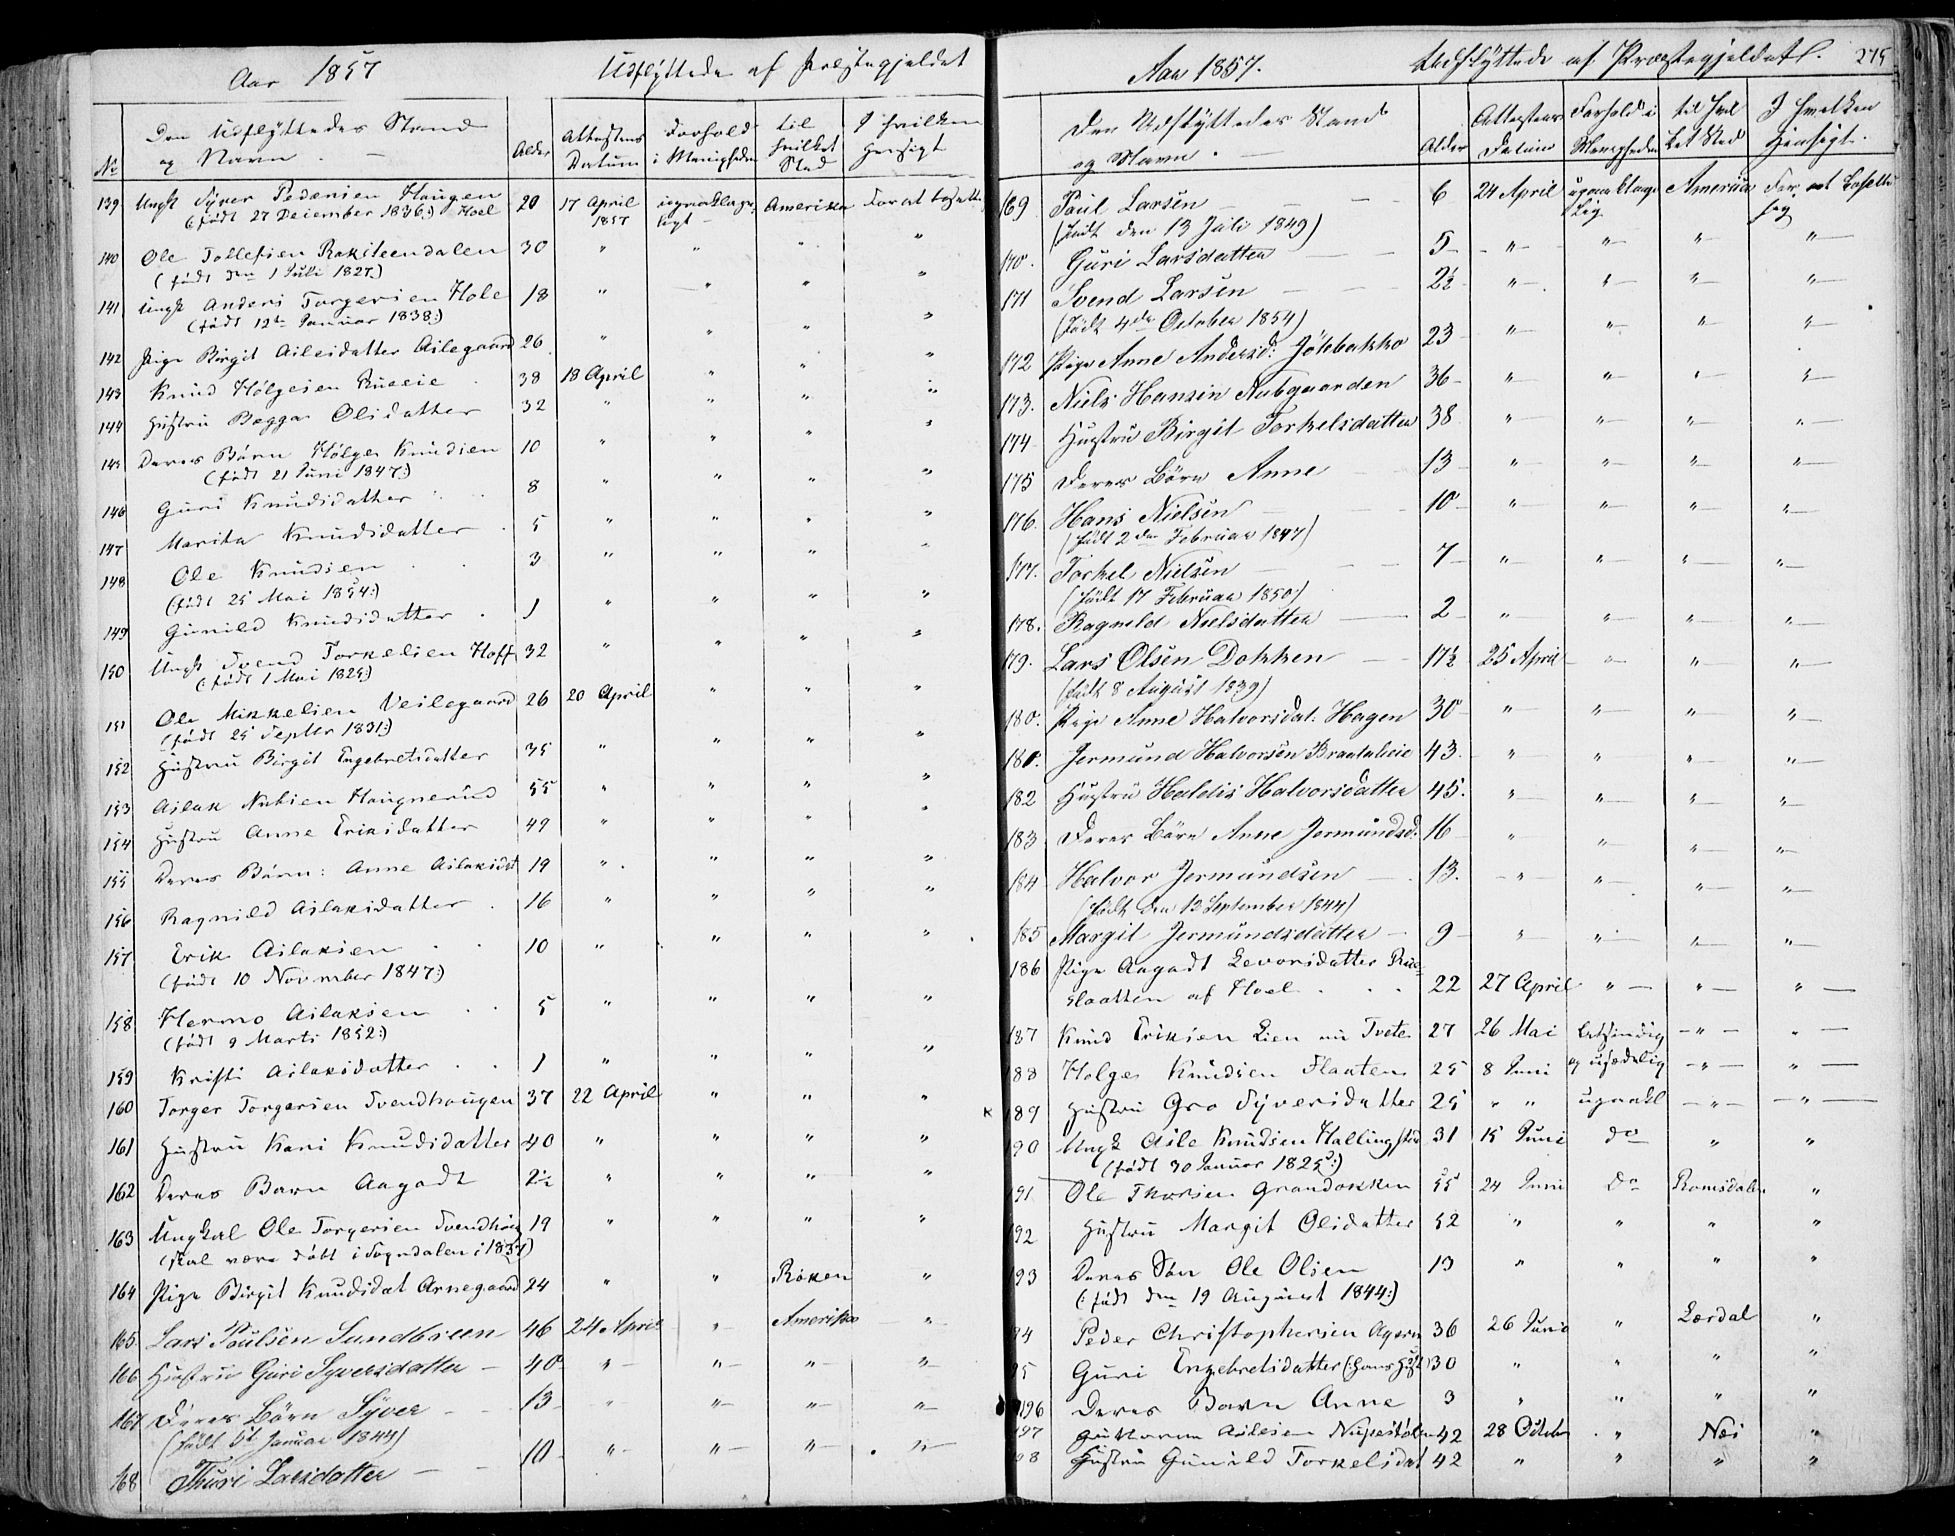 Aar 1857 Udflyttede af Præstegjeldet
No Den Udflyttedes Stand og Navn. Alder Attestens Datum Forhold i Menigheden til hvilket Sted I hvilken Hensigt
139 Ungk Syver Pedersen Haugen 20 17 April 1857 Amerika For at
(: født 27 December 1836 :) Hoel
140 Ole Tollefsen 30 " " " "
(født den 1 Juli 1827)
141 Ungk Anders Torgersen Hole 18 " " " "
(født 12te Januar 1838:)
142 Pige Birgit Asledatter Aslegaard 26 " " " "
143 Knud Holgesen Rueslie 38 18 April " " "
144 Hustru Beggar Olsdatter 32 " " " "
145 Deres Børn Holge Knudsen 10 " " " "
(født 21 Juni 1847:)
146 Guri Knudsdatter 8 " " " "
147 Marita Knudsdatter 5 " " " "
148 Ole Knudsen 3 " " " "
(født 25 Mai 1854:)
149 Gunild Knudsdatter 1 " " " "
150 Ungk Svend Torkelsen Hoff 32 " " " "
(: født 1 Mai 1825)
151 Ole Mikkelsen Veslegaard 26 20 April " " "
(født 25 Septbr 1831:)
152 Hustru Birgit Engebretsdatter 35 " " " "
153 Aslak Haugnerud 55 " " " "
154 Hustru Anne Eriksdatter 49 " " " "
155 Deres Børn: Anne Aslaksdat 19 " " " "
156 Ragnild Aslaksdatter 16 " " " "
157 Erik Aslaksen 10 " " " "
(født 10 November 1847:)
158 Hermo Aslaksen 5 " " " "
(født 9 Marts 1852:)
159 Kristi Aslaksdatter 1 " " " "
160 Torger Torgersen Svendhougen 37 22 April " " "
161 Hustru Kari Knudsdatter 40 " " " "
162 Deres Barn Aagodt 2½ " " " "
163 Ungkal Ole Torgersen 19 " " " "
(skal være født i Sogndalen i 1837)
164 Pige Birgit Knudsdat Arnegaard 24 " " Røken "
165 Lars Poulsen Sundbreen 46 24 April " Amerika "
166 Hustru Guri Syversdatter 40 " " " "
167 Deres Børn Syver 13 " " " "
(født 5t Januar 1844)
168 Thuri Larsdatter 10 " " " "
Aar 1857. Udflyttede af Præstegjeldet. 275
Den Udflyttedes Stand og Navn. Alder Attestens Datum Forhold i Menigheden til hvilket Sted I hvilken Hensigt.
169 Poul Larsen 6 24 April Amerika For at bosætte sig
(født den 13 Juli 1849)
170. Guri Larsdatter 5 " " " "
171 Svend Larsen 2½ " " " "
(født 4de October 1854)
172 Pige Anne Andersd: 23 " " " "
173. Niels Hansen Nubgaarden 36 " " " "
174 Hustru Birgit Torkelsdatter 38 " " " "
175 Deres Børn Anne 13 " " " "
176. Hans Nielsen 10 " " " "
(født 2den Februar 1847)
177. Torkel Nielsen 7 " " " "
(født 17 Februar 1850:)
178. Ragnild Nielsdatter 2 " " " "
179. Lars Olsen Dokken 17½ 25 April " " "
(født 8 August 1839)
180. Pige Anne Halvorsdat: Hagen 30 " " " "
181. Jermund Halvorsen 43 " " " "
182 Hustru Haldis Halvorsdatter 45. " " " "
183 Deres Børn Anne Jermundsd: 16 " " " "
184 Halvor Jermundsen 13. " " " "
(født den 12 September 1844)
185 Margit Jermundsdatter 9 " " " "
186 Pige Aagodt Levorsdatter
slaatten af Hoel 22 27 April " " "
187 Knud Eriksen Lien nu Tvete 27 26 Mai letsindig " "
188 Holge Knudsen Flaaten 25 8 Juni og usædelig " "
189 Hustru Gro Syversdatter 25 " " upaakl " "
190 Ungk Asle Knudsen 31 15 Juni do " "
(født 30 Januar 1825:)
191 Ole Thorsen Grandokken 55 24 Juni Do Romsdalen "
192 Hustru Margit Olsdatter 52 " " " "
193 Deres Søn Ole Olsen 13 " " " "
(: født den 19 August 1844:)
94 Peder Christophersen 36 26 Juni " Lærdal "
95 Guri Engebretsdatter (: hans Hust 30 " " " "
196 Deres Barn Anne 3 " " " "
197 42 28 Octobr " Næs "
98 Hustru Gunild Torkelsdat 42 " " " "